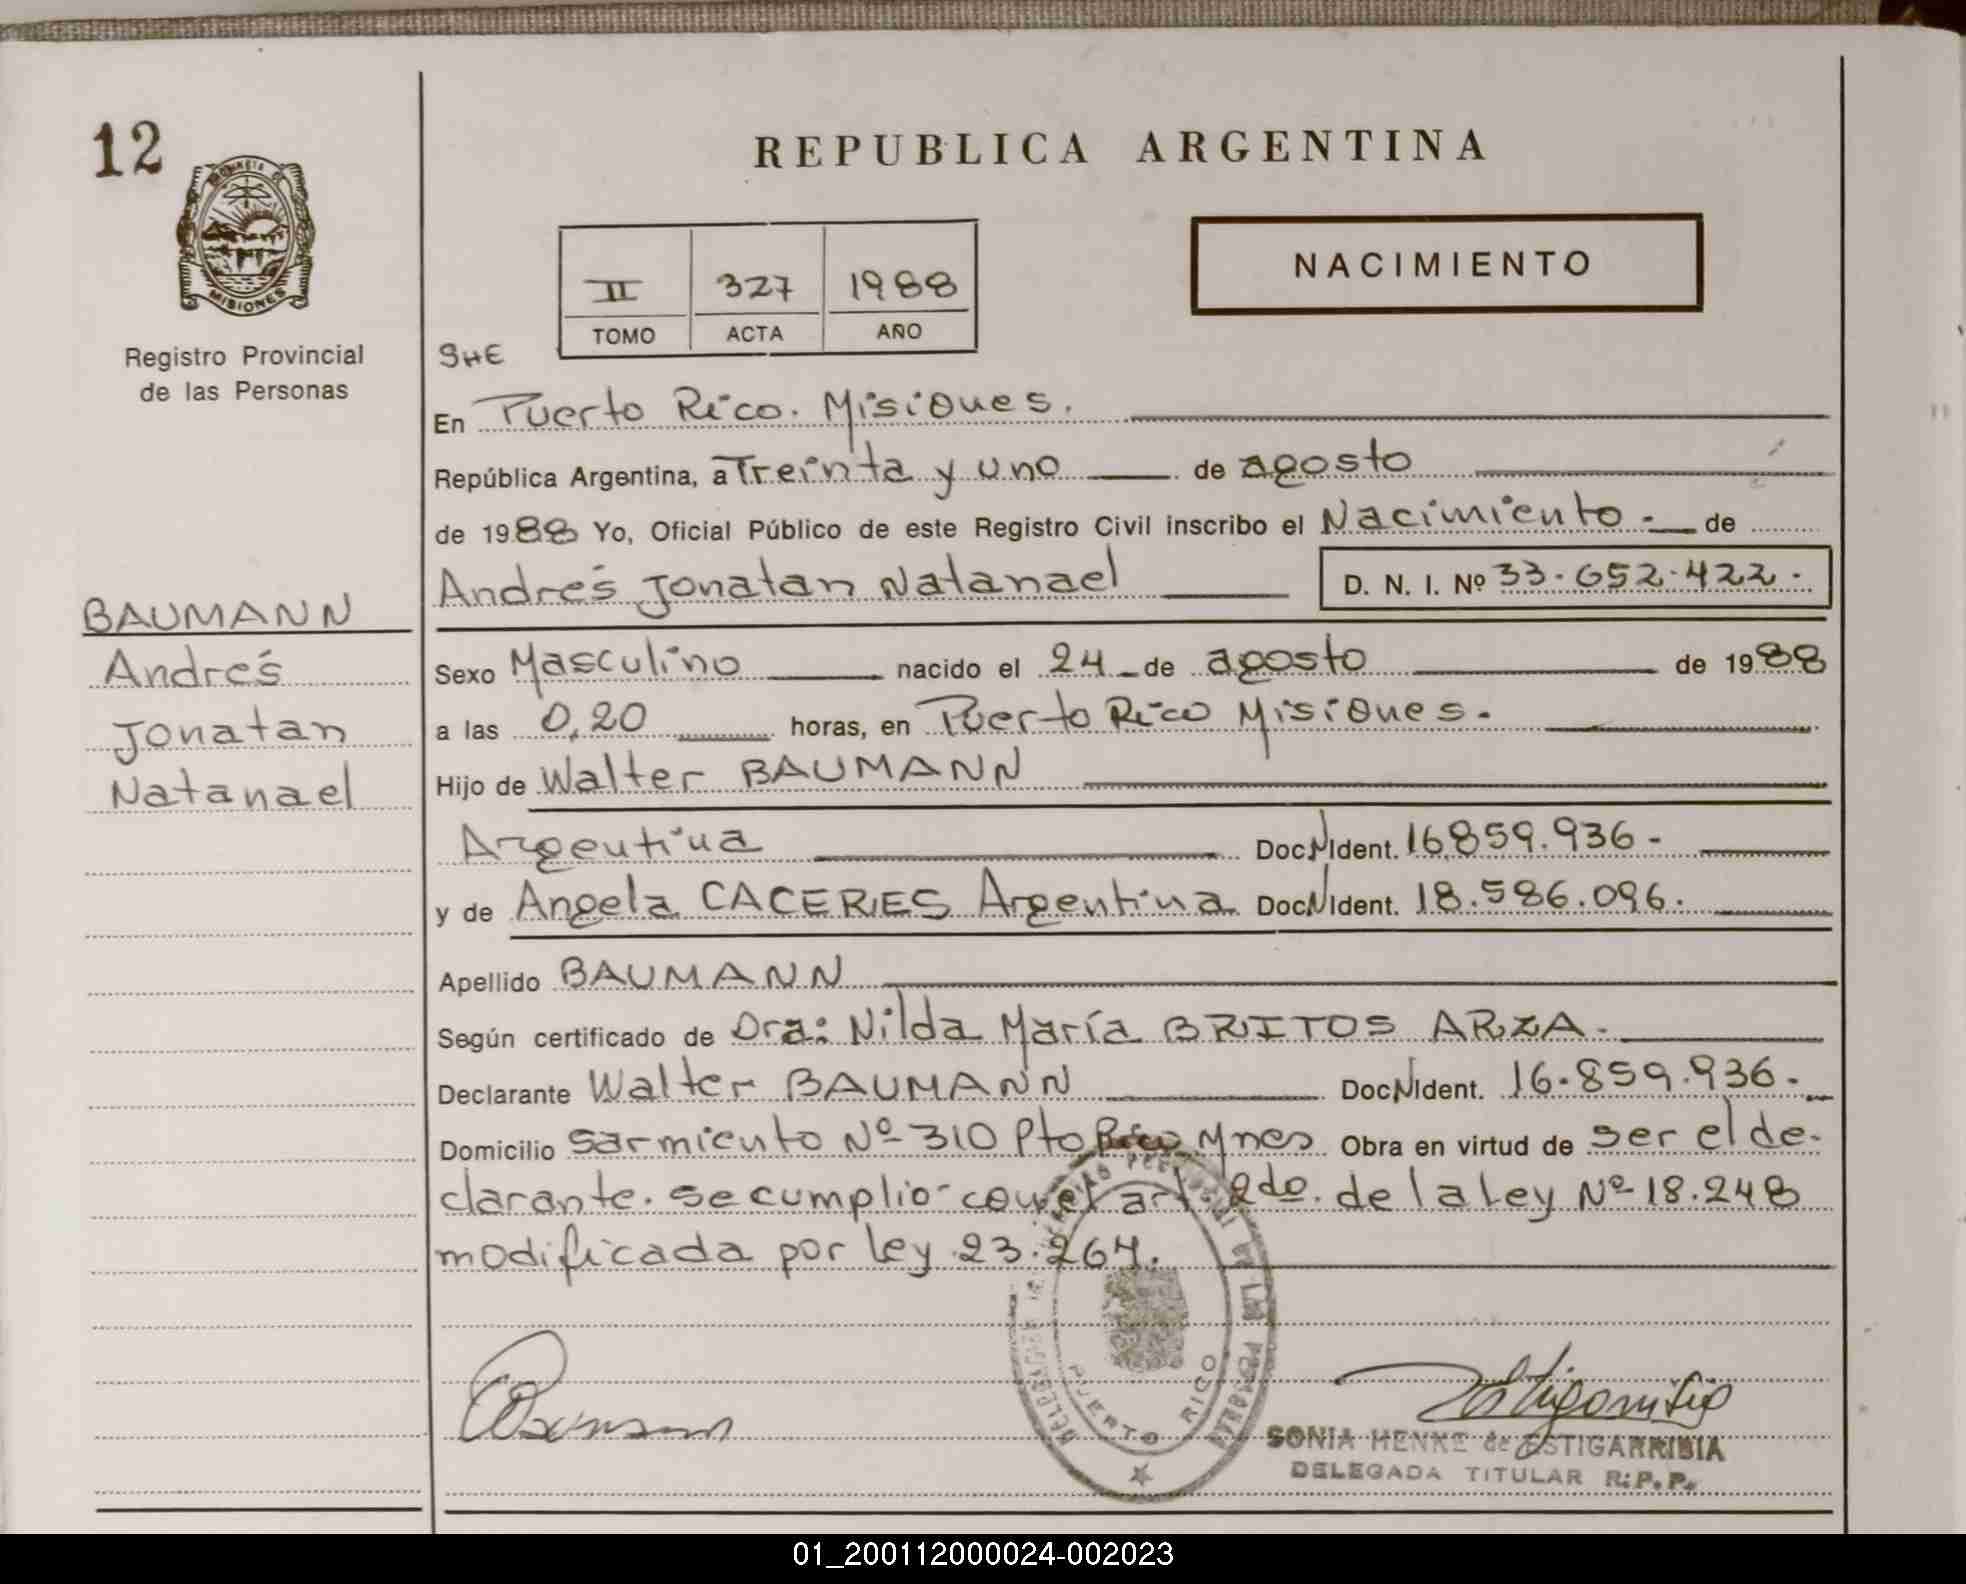 12
REPUBLICA ARGENTINA
NACIMIENTO
II 327 1988
TOMO ACTA AÑO
MISIONES
Registro Provincial
de las Personas
SHE
En Puerto Rico. Misiones.
República Argentina, a Treinta y uno de agosto
de 1988 Yo, Oficial Público de este Registro Civil inscribo el Nacimiento.- de
Andrés Jonatan Natanael D. N. I. Nº 33.652.422.
BAUMANN
Andrés
Jonatan
Natanael
Sexo Masculino nacido el 24 de agosto de 1988
a las 0,20 horas, en Puerto Rico Misiones.
Hijo de Walter BAUMANN
Argentina Doc N Ident. 16.859.936-
y de Angela CACERES Argentina Doc N Ident. 18.586.096.
Apellido BAUMANN
Según certificado de Dra: Nilda María BRITOS ARZA.
Declarante Walter BAUMANN Doc N Ident. 16.859.936.
Domicilio Sarmiento Nº 310 Pto Rico Mnes Obra en virtud de ser el de-
clarante. se cumplió con el art 2do. de la Ley Nº 18.248
modificada por ley 23.264.
PUERTO RICO
SONIA HENKE de ESTIGARRIBIA
DELEGADA TITULAR R.P.P.
01_200112000024-002023